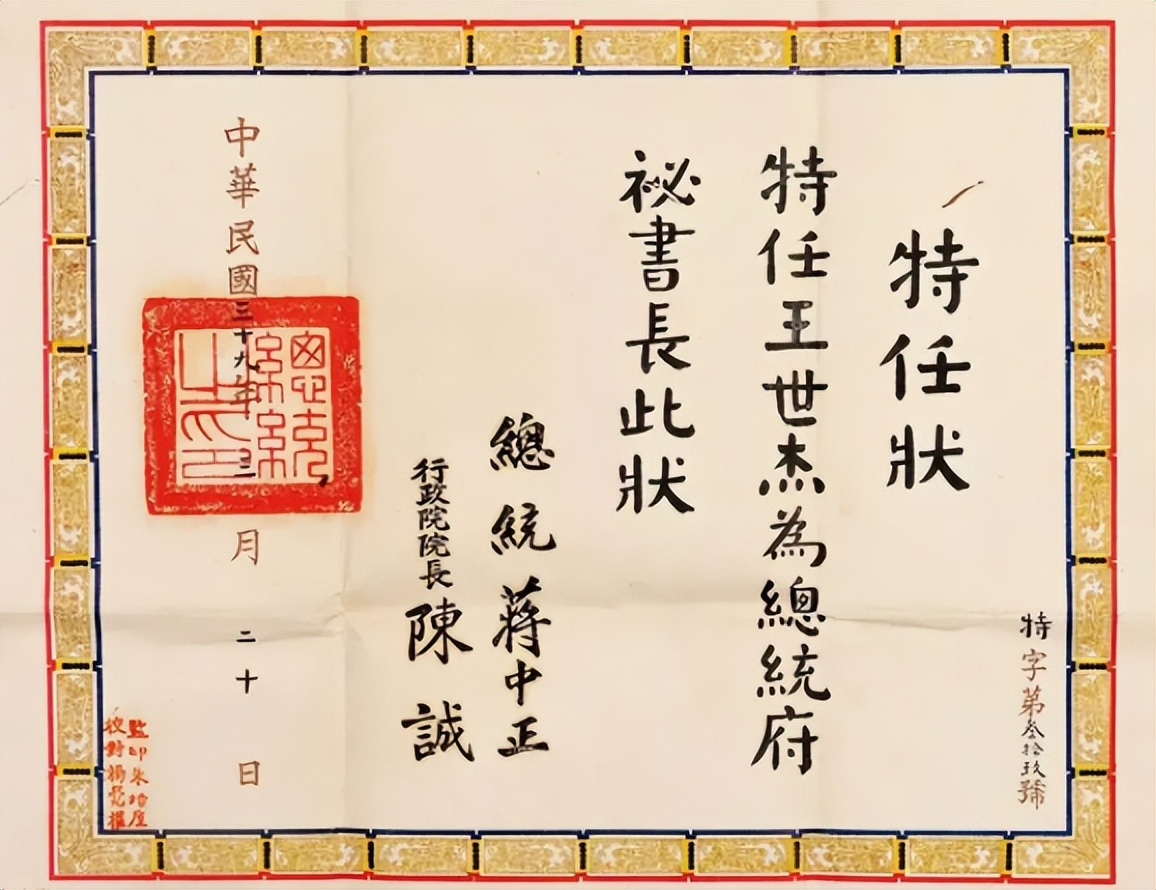 特字第叁拾玖號
特任狀
特任王世杰為總統府
祕書長此狀
總統蔣中正
行政院院長陳誠
中華民國三十九年三月二十日
總統
之印
監印朱
校對楊